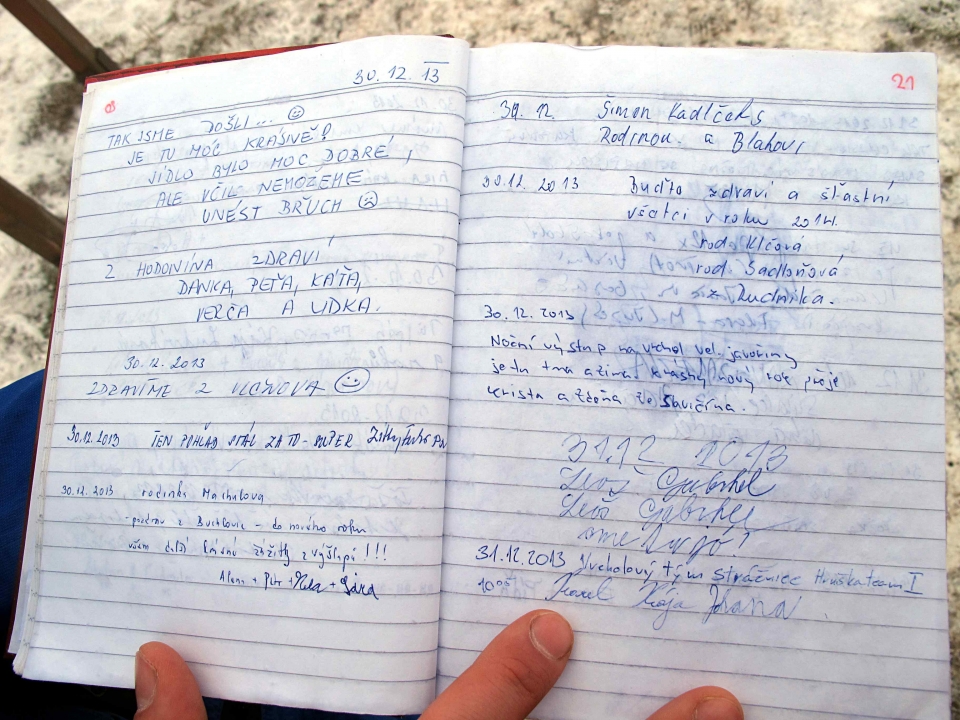 30. 12. 13
TAK JSME DOŠLI...
JE TU MOC KRÁSNĚ!
JÍDLO BYLO MOC DOBRÉ,
ALE VČIL NEMOŽEME
UNÉST BŘUCH
Z HODONÍNA ZDRAVÍ
DANKA, PEŤA, KÁŤA,
VERČA A LIDKA.
30.12.2013
ZDRAVÍME Z VLČNOVA
30.12.2013 TEN POHLED STÁL ZA TO - SUPER
30.12.2013 rodinka Machalova
- pozdrav z Buchlovic - do nového roku
všem další krásné zážitky z výšlapů!!!
Alena + Petr + +
21
30. 12. Šimon Kadlček s
Rodinou a Blahovi
30.12. 2013 Buďto zdraví a šťastní
všetci v roku 2014.
rod Klčová
rod Sadloňová
z Rudníka.
30.12.2013
Noční výstup na vrchol vel. javořiny
je tu tma a zima. krásný nový rok přeje
krista a ze Slavičína.
31.12 2013
Gabrhel
Gabrhel
sme
31.12.2013 Vrcholový tým strážnice Hruškateam I
10⁰⁵ Karel Kája Jana